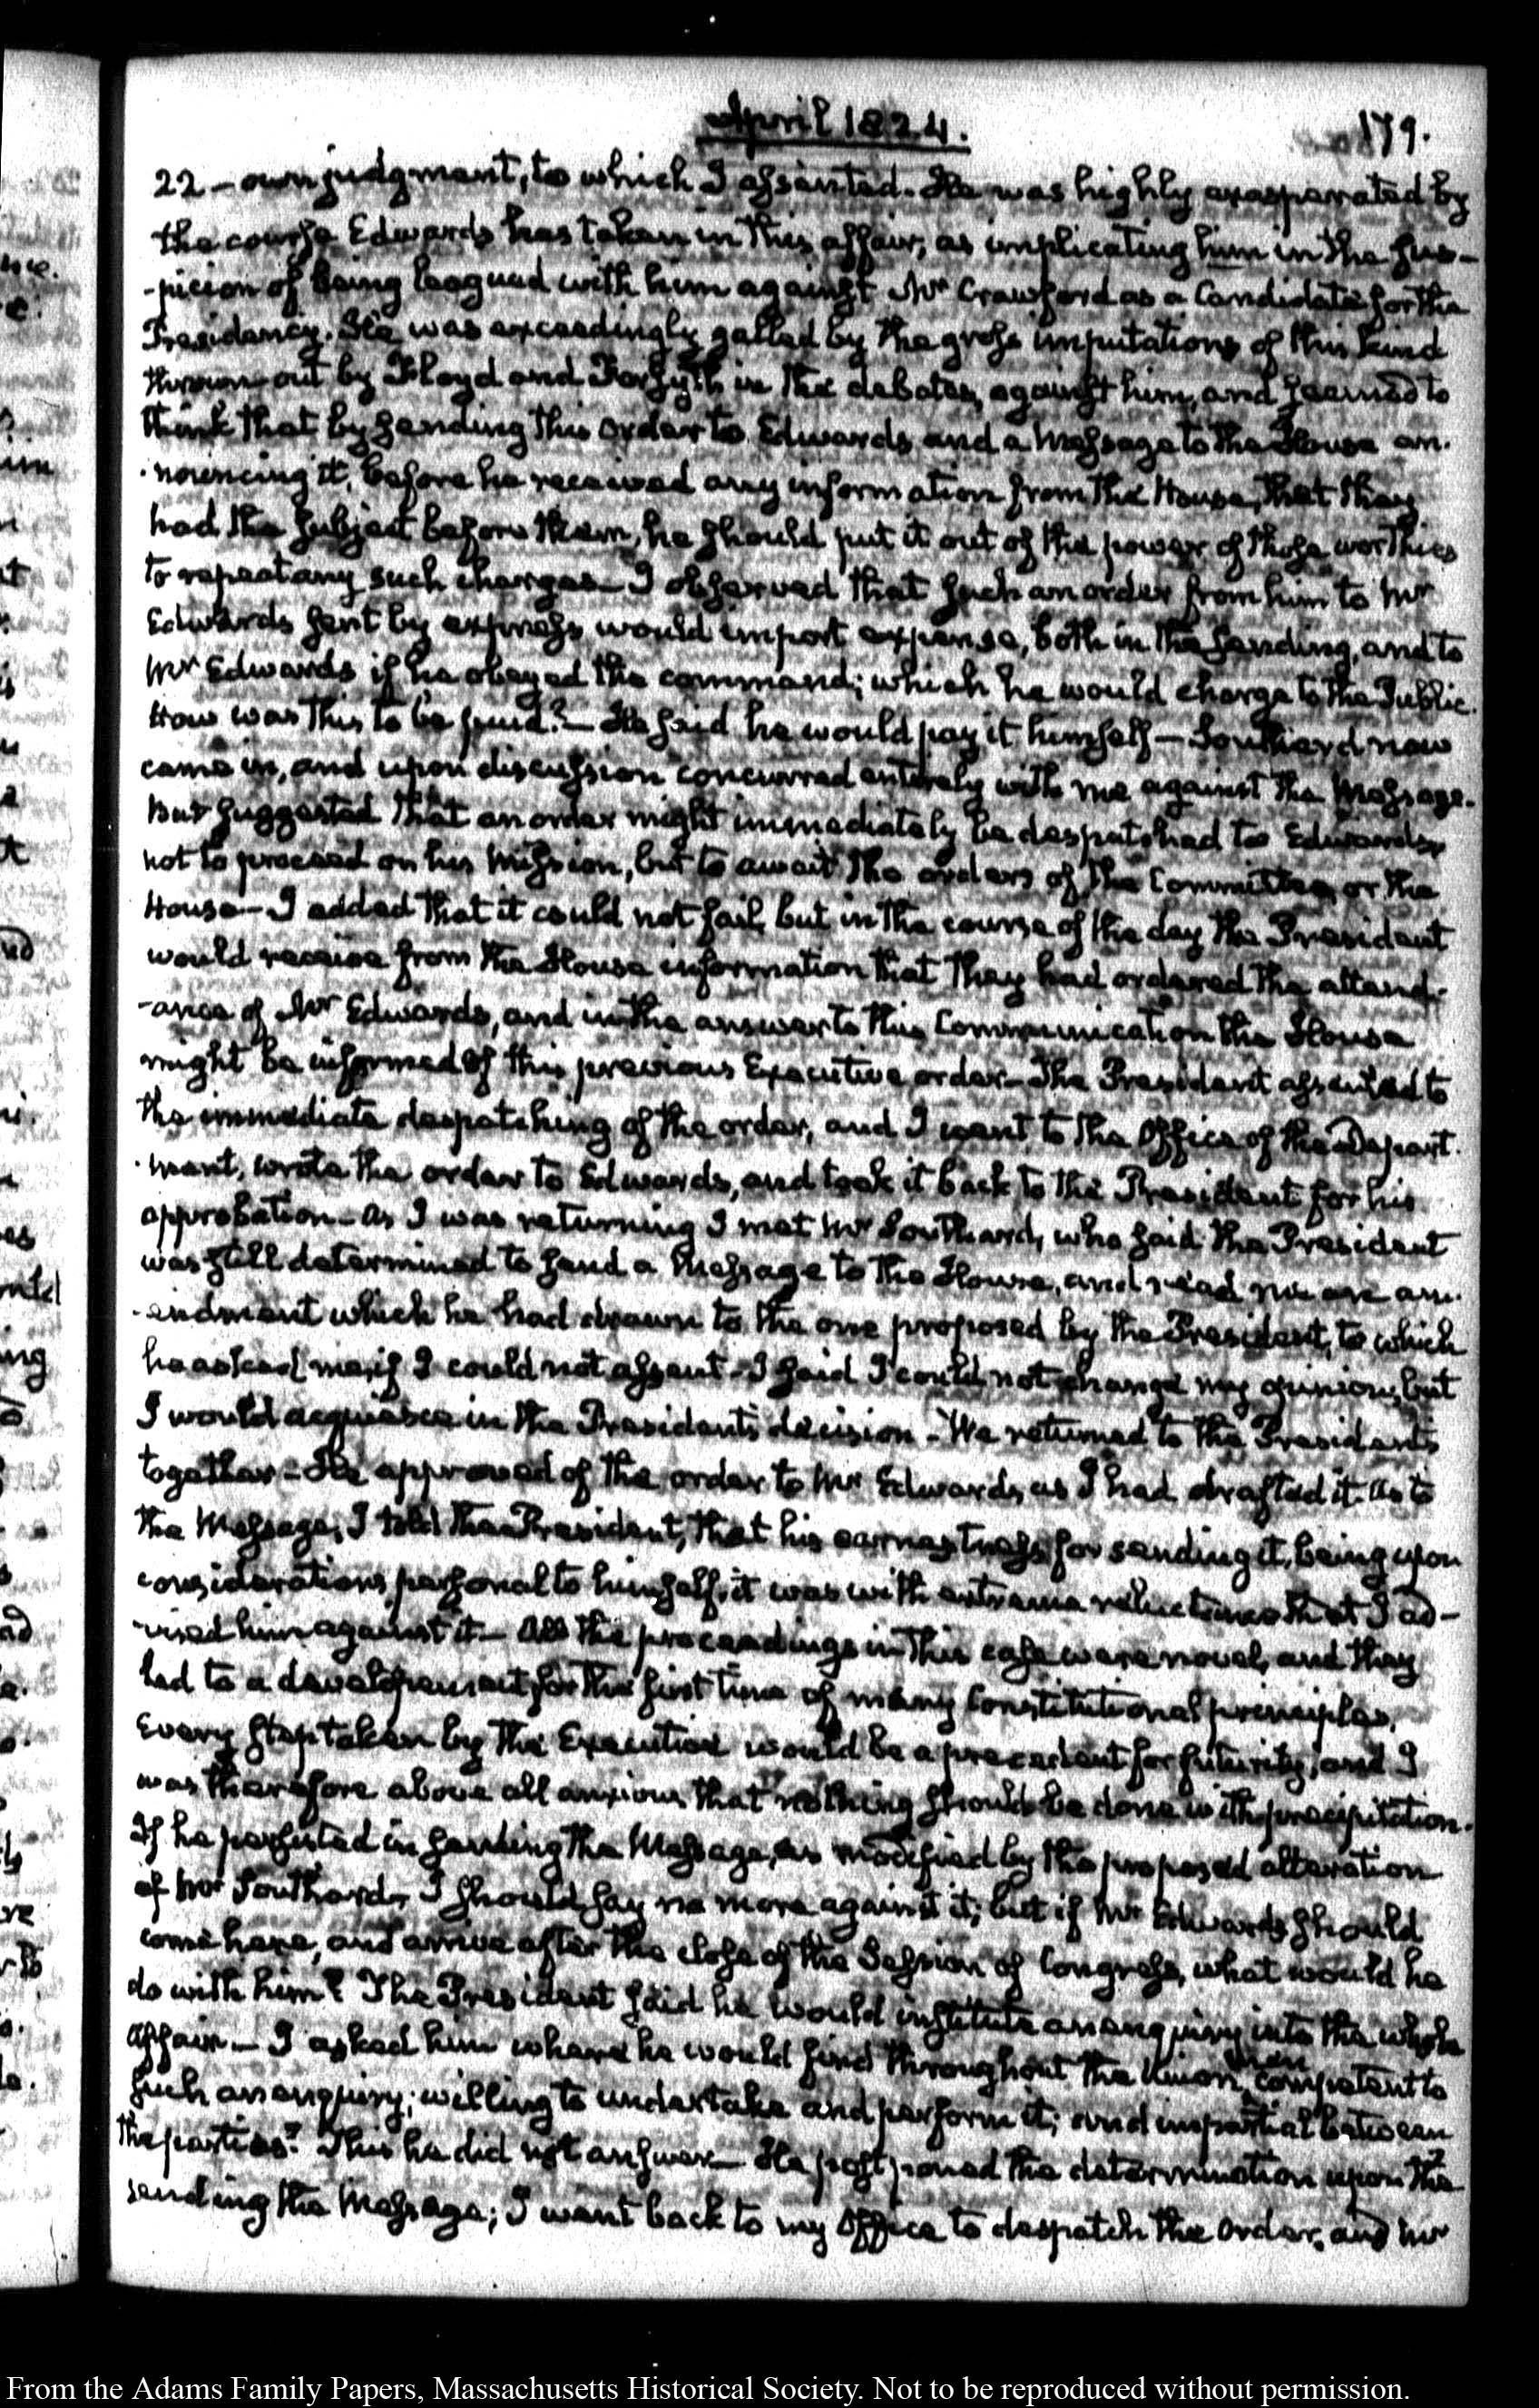 April 1824.
179.
22 - own judgment, to which I assented. He was highly exasperated by
the course Edwards has taken in this affair, as implicating him in the sus-
-picion of being leagued with him against Mr Crawford as a Candidate for the
Presidency. He was exceedingly galled by the gross imputations of this kind
thrown out by Floyd and Forsyth in the debates, against him, and seemed to
think that by sending this order to Edwards and a Message to the House an-
-nouncing it, before he received any information from the House, that they
had the subject before them, he should put it out of the power of those worthies
to repeat any such charges - I observed that such an order from him to Mr
Edwards sent by express would import expense, both in the sending, and to
Mr Edwards if he obeyed the command; which he would charge to the Public.
How was this to be paid? - He said he would pay it himself - Southard now
came in, and upon discussion concurred entirely with me against the Message.
But suggested that an order might immediately be despatched to Edwards,
not to proceed on his Mission, but to await the orders of the Committee, or the
House - I added that it could not fail, but in the course of the day the President
would receive from the House information that they had ordered the attend-
-ance of Mr Edwards, and in the answer to this Communication the House
might be informed of this previous Executive order - The President assented to
the immediate despatching of the order, and I went to the Office of the Depart-
-ment, wrote the order to Edwards, and took it back to the President for his
approbation - As I was returning I met Mr Southard, who said the President
was still determined to send a Message to the House, and read me an am-
-endment which he had drawn to the one proposed by the President, to which
he asked me, if I could not assent - I said I could not change my opinion, but
I would acquiesce in the President's decision - We returned to the Presidents
together - He approved of the order to Mr Edwards, as I had drafted it. As to
the Message, I told the President, that his earnestness for sending it, being upon
considerations personal to himself, it was with extreme reluctance that I ad-
-vised him against it - All the proceedings in this case were novel, and they
led to a developement for the first time of many Constitutional principles.
Every step taken by the Executive would be a precedent for futurity, and I
was therefore above all anxious that nothing should be done with precipitation.
If he persisted in sending the Message, as modified by the proposed alteration
of Mr Southard, I should say no more against it; but if Mr Edwards should
come here, and arrive after the close of the Session of Congress, what would he
do with him? The President said he would institute an enquiry into the whole
affair - I asked him where he would find throughout the Union, men competent to
such an enquiry; willing to undertake and perform it; and impartial between
the parties? This he did not answer - He postponed the determination upon the
sending the Message; I went back to my Office to despatch the order, and Mr
From the Adams Family Papers, Massachusetts Historical Society. Not to be reproduced without permission.